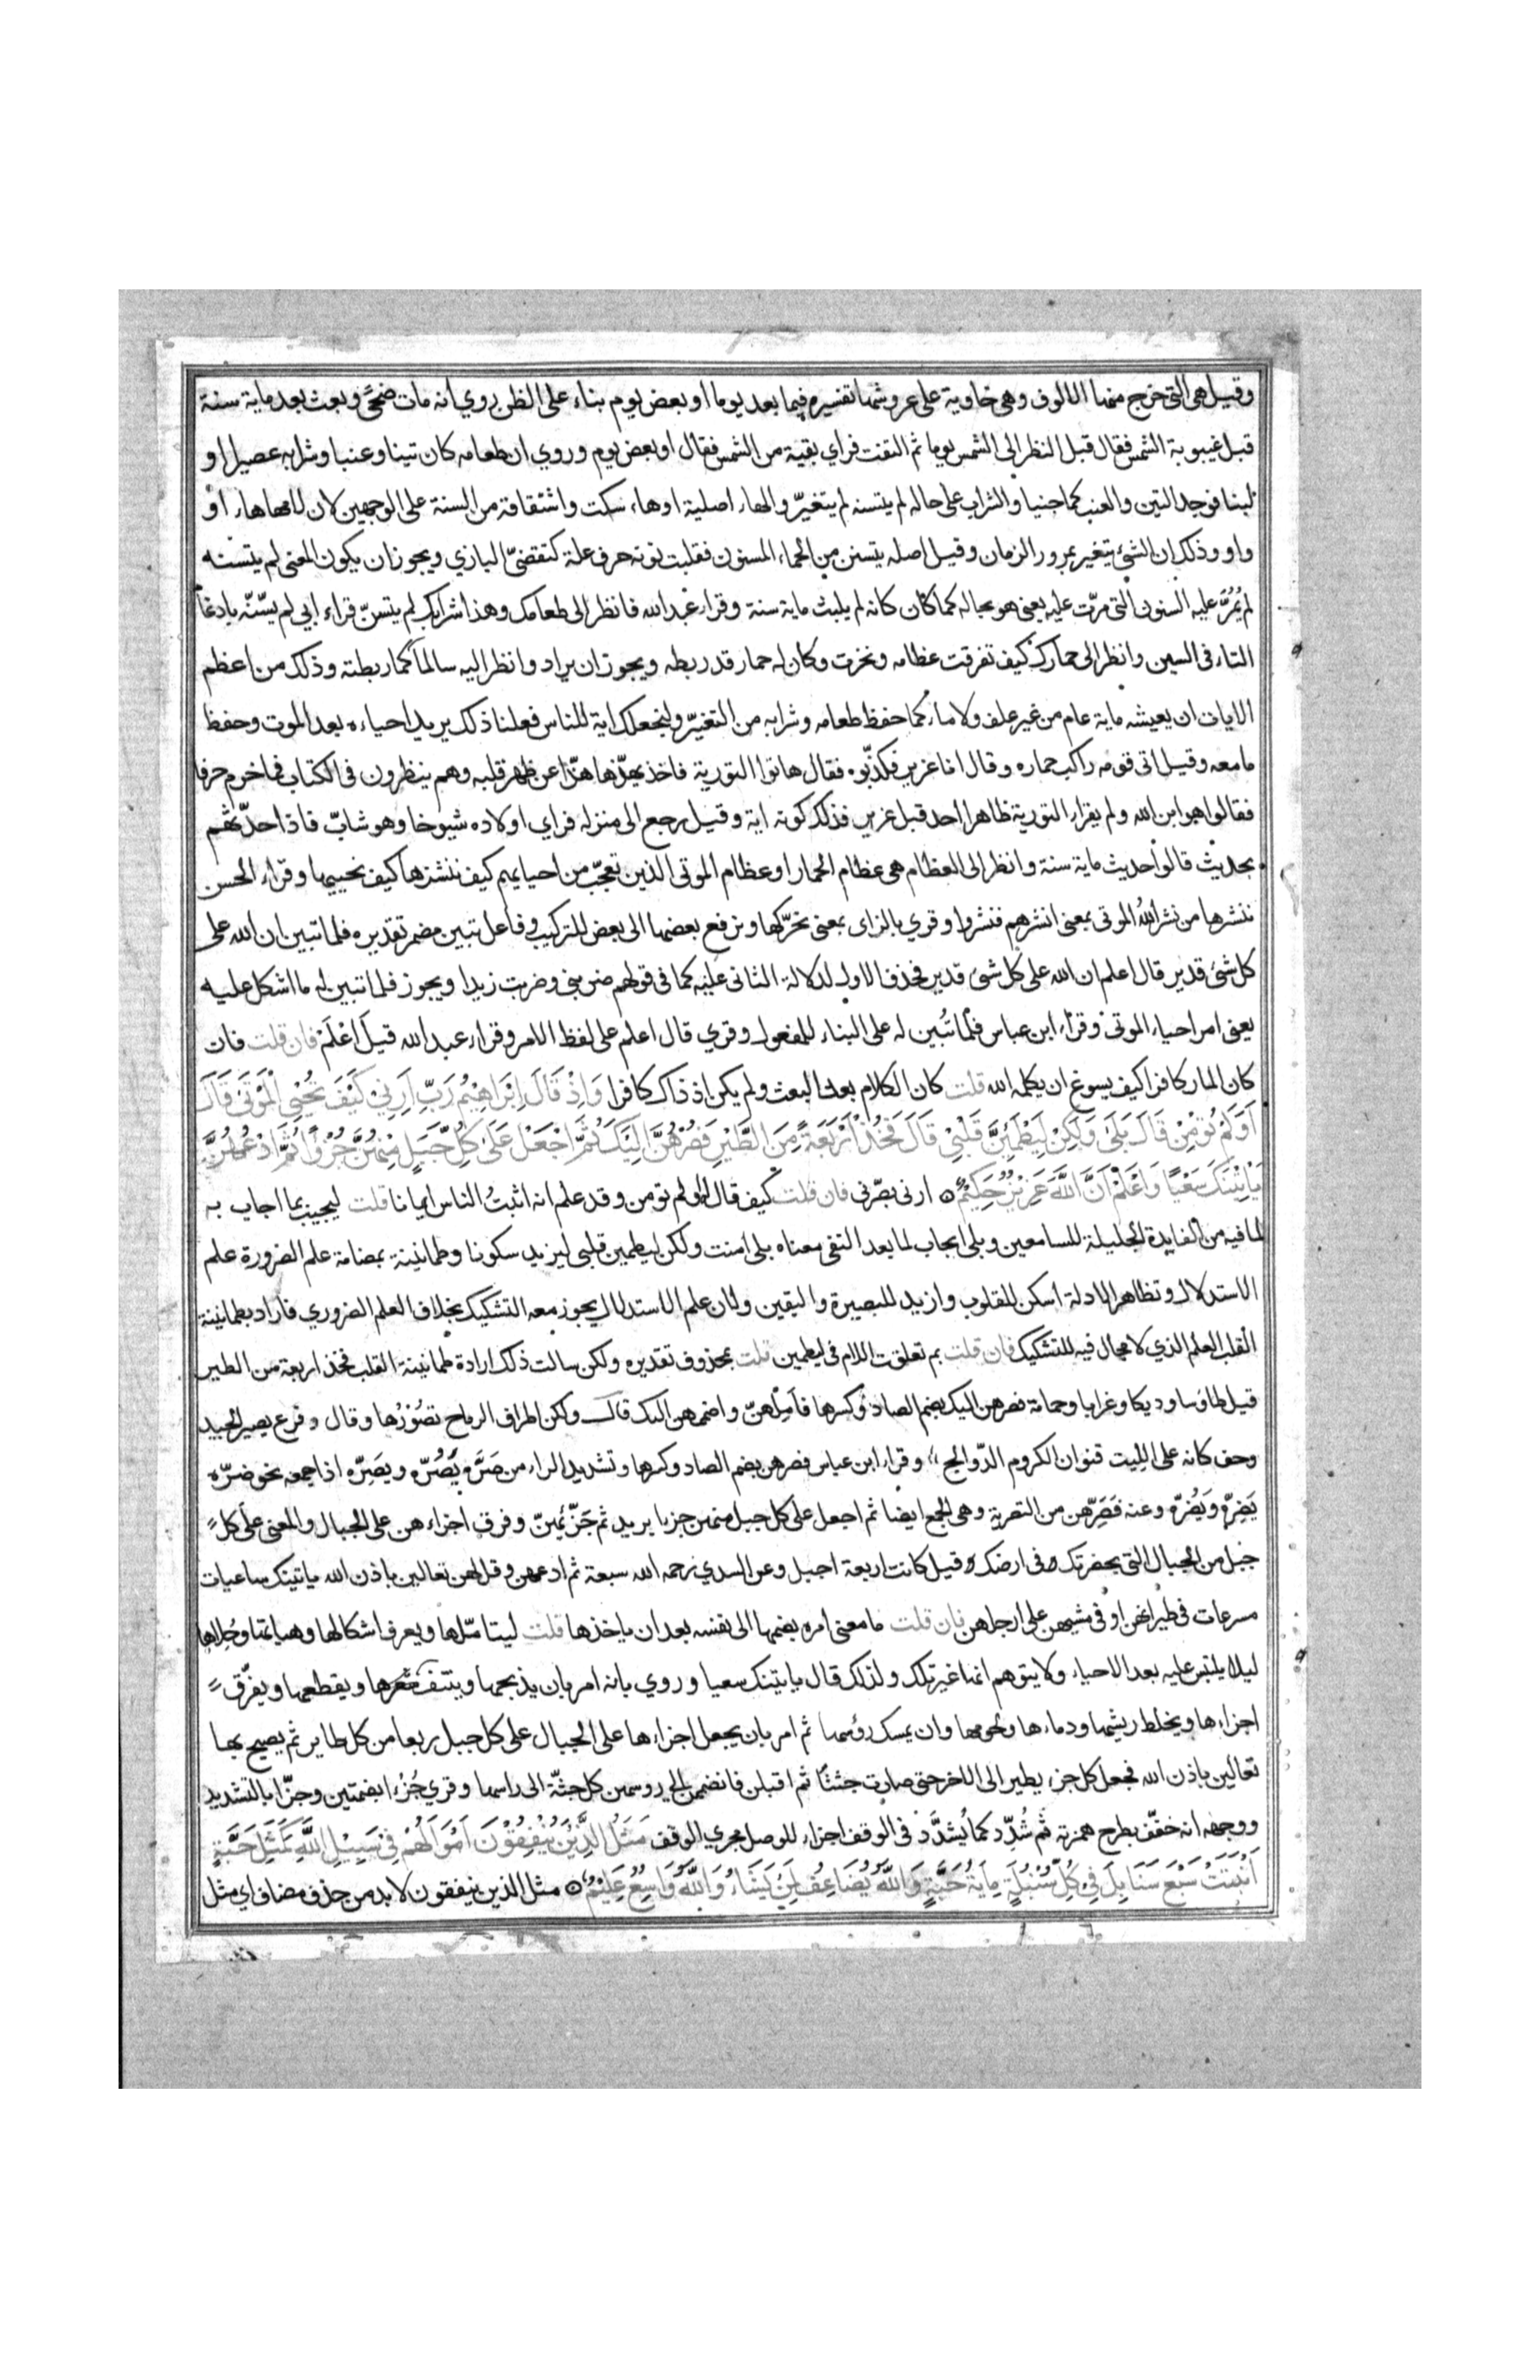 وقيل هى التى خرج منها الالوف وهى خاوية على عروشها تفسيره فيما بعد يوما او بعض يوم بناء على الظن روي انه مات ضحىً وبعث بعد ماية سنة
قبل غيبوبة الشمس فقال قبل النظر الى الشمس يوما ثم التفت فراي بقية من الشمس فقال او بعض يوم وروي ان طعامه كان تينا وعنبا وشرابه عصيرا او
لبنا فوجد التين والعنب كما جنيا والشراب على حاله لم يتسنه لم يتغيّر والهاء اصلية او هاء سكت واشتقاقة من السنة على الوجهين لان لامها هاء او
واو وذلك ان الشئ يتغير بمرور الزمان وقيل اصله يتسنن من الحماء المسنون فقلبت نونه حرف علة كتقضىّ البازي ويجوز ان يكون المعنى لم يتسنه
لم يُمُرَّ عليه السنون التى مرّت عليه يعنى هو بحاله كما كان كانه لم يلبث ماية سنة وقراء عبد الله فانظر الى طعامك وهذا شرابك لم يتسنّ قراء ابي لم يسّنّه بادغام
التاء فى السين وانظر الى حمارك كيف تفرقت عظامه ونخزت وكان له حمار قد ربطه ويجوز ان يراد وانظر اليه سالماً كما ربطتة وذلك من اعظم
الايات ان يعيشه ماية عام من غير علف ولا ماء كما حفظ طعامه وشرابه من التغيّر ولنجعلك اية للناس فعلنا ذلك يريد احياءه بعد الموت وحفظ
ما معه وقيل اتى قومه راكب حماره وقال انا عزير فكذّبوه فقال هاتوا التورية فاخذ يهذّها هذّا عن ظهر قلبه وهم ينظرون فى الكتاب فما خرم حرفا
فقالوا هو ابن الله ولم يقراء التورية ظاهرا احد قبل عزير فذلك كونه اية وقيل رجع الى منزله فراي اولاده شيوخا وهو شابّ فاذا حدّثهم
بحديث قالوا حديث ماية سنة وانظر الى العظام هى عظام الحمار او عظام الموتى الذين تعجّب من احيايهم كيف ننشزها كيف نحييها وقراء الحسن
ننشرها من نشر اللهُ الموتى بمعنى انشرهم فنشروا وقري بالزاى بمعنى نحرّكها ونرفع بعضها الى بعض للتركيب وفاعل تبين مضمر تقديره فلما تبين ان الله على
كل شئ قدير قال اعلم ان الله على كل شئ قدير فحذف الاول لدلالة الثانى عليه كما فى قولهم ضربنى وضربت زيدا ويجوز فلما تبين له ما اشكل عليه
يعنى امر احياء الموتى وقراء ابن عباس فلما تُبين له على البناء للمفعول وقري قال اعلم على لفظ الامر وقراء عبد الله قيل اعْلَمْ فان قلت فان
كان المار كافرا كيف يسوغ ان يكلمه الله قلت كان الكلام بعد البعث ولم يكن اذ ذاك كافرا وَاِذْ قَالَ اِبْرَاهِيْمُ رَبِّ اَرِنِيْ كَيْفَ تُحْيِي الْمَوْتٰى قَالَ
اَوَلَمْ تُوْمِنْ قَالَ بَلٰى وَلٰكِنْ لِيَطْمَئِنَّ قَلْبِيْ قَالَ فَخُذْ اَرْبَعَةً مِنَ الطَّيْرِ فَصُرْهُنَّ اِلَيْكَ ثُمَّ اجْعَلْ عَلٰى كُلِّ جَبَلٍ مِنْهُنَّ جُزْءًا ثُمَّ ادْعُهُنَّ
يَاْتِيْنَكَ سَعْيًا وَاعْلَمْ اَنَّ اللّٰهَ عَزِيْزٌ حَكِيْمٌ ارنى بصّرنى فان قلت كيف قال اولم تومن وقد علم انه اثبتُ الناس ايمانا قلت ليجيب بما اجاب به
لما فيه من الفايدة الجليلة للسامعين وبلى ايجاب لما بعد النفى معناه بلى امنت ولكن ليطمين قلبى ليزيد سكونا وطمانينة بمضامة علم الضرورة علم
الاستدلال وتظاهر الادلة اسكن للقلوب وازيد للبصيرة واليقين ولان علم الاستدلال يجوز معه التشكيك بخلاف العلم الضروري فاراد بطمانينة
القلب العلم الذي لا مجال فيه للتشكيك فان قلت بم تعلقت اللام فى ليطمين قلت بمحذوف تقديره ولكن سالت ذلك ارادة طمانينة القلب فخذ اربعة من الطير
قيل طاؤسا وديكا وغرابا وحمامة فصرهن اليك بضم الصاد وكسرها فاَمِلْهنّ واضممهن اليك قال ولكن اطراف الرماح تصُوْرُها وقال وفرع يصير الجيد
وحف كانه على اللِيت قنوان الكروم الدّوالج وقراء ابن عباس فصرهن بضم الصاد وكسرها وتشديد الراء من صَرَّه يَصُرّه ويصِرّه اذا جمعه نحو ضرّه
يَضِرّه ويَضُرّه وعنه فَصَرِّهن من التصرية وهى الجمع ايضا ثم اجعل على كل جبل منهن جزءا يريد ثم جَزّئهنّ وفرق اجزاءهن على الجبال والمعنى على كل
جبل من الجبال التى بحضرتك وفى ارضك وقيل كانت اربعة اجبل وعن السدي رحمه الله سبعة ثم ادعهن وقل لهن تعالين باذن الله ياتينك ساعيات
مسرعات فى طيرانهن او فى مشيهن على ارجلهن فان قلت ما معنى امره بضمها الى نفسه بعد ان ياخذها قلت ليتاملها ويعرف اشكالها وهياتها وحُلاها
ليلا يلتبس عليه بعد الاحياء ولا يتوهم انها غير تلك ولذلك قال ياتينك سعيا وروي بانه امر بان يذبحها وينتف شعرها ويقطعها ويفرّق
اجزاءها ويخلط ريشها ودماءها ولحومها وان يمسك رؤسها ثم امر بان يجعل اجزاءها على الجبال على كل جبل ربعا من كل طاير ثم يصيح بها
تعالين باذن الله فجعل كل جزء يطير الى الاخر حتى صارت جثثاً ثم اقبلن فانضممن الى روسهن كل جثّة الى راسها وقري جُزُءا بضمتين وجزّا بالتشديد
ووجهه انه خفّف بطرح همزته ثم شُدّد كما يُشدَّد فى الوقف اجراء للوصل مجري الوقف مَثَلُ الَّذِيْنَ يُنْفِقُوْنَ اَمْوَالَهُمْ فِيْ سَبِيْلِ اللّٰهِ كَمَثَلِ حَبَّةٍ
اَنْبَتَتْ سَبْعَ سَنَابِلَ فِيْ كُلِّ سُنْبُلَةٍ مِايَةُ حَبَّةٍ وَاللّٰهُ يُضَاعِفُ لِمَنْ يَشَاءُ وَاللّٰهُ وَاسِعٌ عَلِيْمٌ مثل الذين ينفقون لا بد من حذف مضاف اي مثل